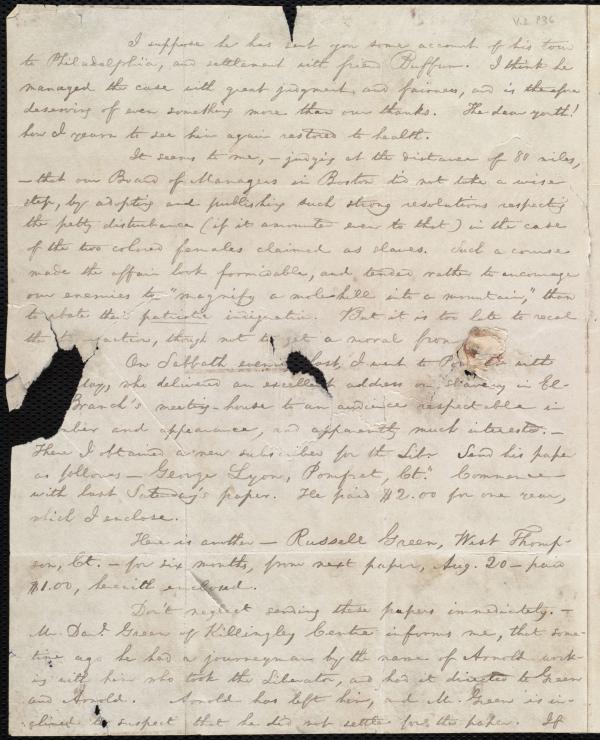 V.2 P36
I suppose he has sent you some account of his tour
to Philadelphia, and settlement with friend Buffum. I think he
managed the case with great judgment and fairness, and is therefore
deserving of even something more than our thanks. The dear youth!
how I yearn to see him again restored to health.
It seems to me, – judging at the distance of 80 miles,
– that our Board of Managers in Boston did not take a wise
step, by adopting and publishing such strong resolutions respecting
the petty disturbance (if it amounts even to that) in the case
of the two colored females claimed as slaves. Such a course
made the affair look formidable, and tended rather to encourage
our enemies to "magnify a mole-hill into a mountain," than
to abate their patriotic indignation. But it is too late to recal
the action, though not to get a moral from
On Sabbath evening last, I went to with
day, who delivered an excellent address on slavery in El-
Branch's meeting-house to an audience respectable in
ber and appearance, and apparently much interested. –
There I obtained a new subscriber for the Lib. Send his paper
as follows – George Lyon, Pomfret, Ct." Commence
with last Saturday's paper. He paid $2.00 for one year,
which I enclose.
Here is another – Russell Green, West Thomp-
son, Ct. – for six months, from next paper, Aug. 20 – paid
$1.00, herewith enclosed.
Don't neglect sending these papers immediately. –
Mr. Dav.d Green of Killingley Centre informs me, that some-
time ago he had a journeyman by the name of Arnold work-
ing with him who took the Liberator, and had it directed to Green
and Arnold. Arnold has left him, and Mr. Green is in-
clined to suspect that he did not settle for the paper. If